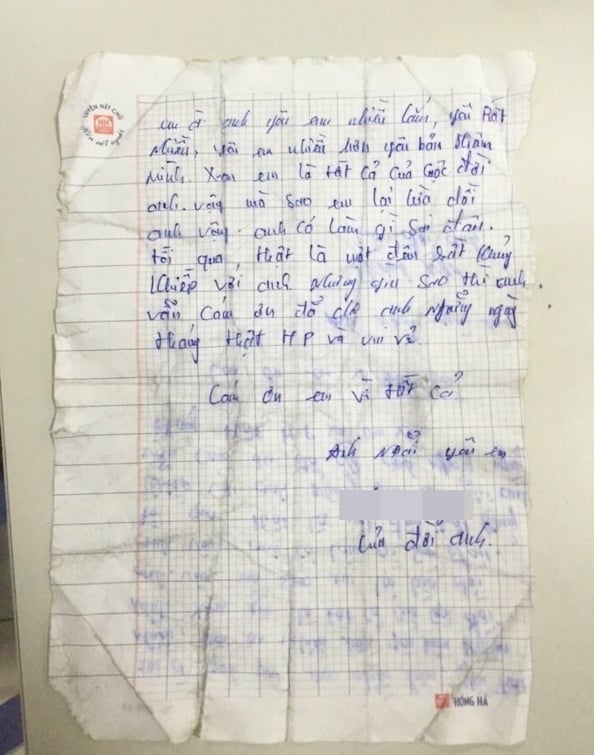 LUYỆN NÉT CHỮ
HH
em ơi anh yêu em nhiều lắm, yêu Rất
Nhiều, yêu em nhiều hơn yêu bản thân
mình. Xem em là tất cả của cuộc đời
anh. vậy mà sao em lại lừa dối
anh vậy. anh có làm gì Sai đâu.
tối qua, thật là một đêm rất khủng
khiếp với anh Nhưng dù Sao thì anh
vẫn cám ơn đã cho anh Những ngày
tháng thật HP và vui vẻ.
Cám ơn em vì tất cả
Anh Mãi yêu em
của đời anh.
HỒNG HÀ